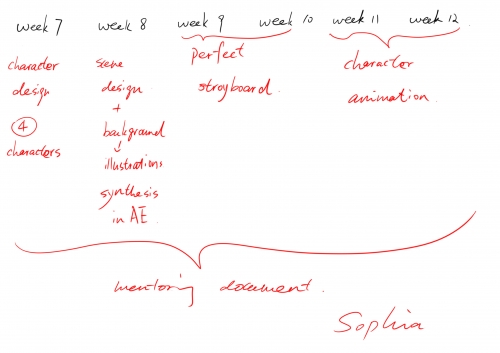 week 7 week 8 week 9 week 10 week 11 week 12
character
design
④
characters
scene
design
+
background
↓
illustrations
synthesis
in AE
perfect
stroyboard.
character
animation.
mentoring document.
Sophia